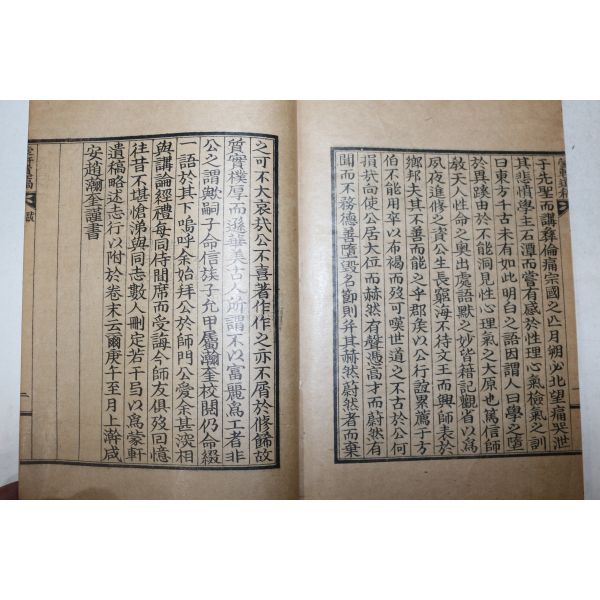 于先聖而講彜倫痛宗國之亡月朔必北望痛哭泄
其悲憤學主石潭而嘗有感於性理心氣檢氣之訓
曰東方千古未有如此明白之語因謂人曰學之墮
於異蹊由於不能洞見性心理氣之大原也篤信師
敎天人性命之奧出處語默之妙皆藉記觀省以爲
夙夜進修之資公生長窮海不待文王而興師表於
鄕邦夫其不善而能之乎郡矦以公行誼累薦于方
伯不能用卒以布褐而歿可嘆世道之不古於公何
損哉向使公居大位而赫然有聲憑高才而蔚然有
聞而不務德善墮毁名節則并其赫然蔚然者而棄
之可不大哀哉公不喜著作作之亦不屑於修餙故
質實樸厚而遜華美古人所謂不以富麗爲工者非
公之謂歟嗣子命信族子允甲屬瀚奎校閱仍命綴
一語於其下嗚呼余始拜公於師門公愛余甚深相
與講論經禮每同侍間席而受誨今師友俱歿回憶
往昔不堪愴涕與同志數人刪定若干弓以爲蒙軒
遺稿略述志行以附於卷末云爾庚午至月上澣咸
安趙瀚奎謹書
跋
二